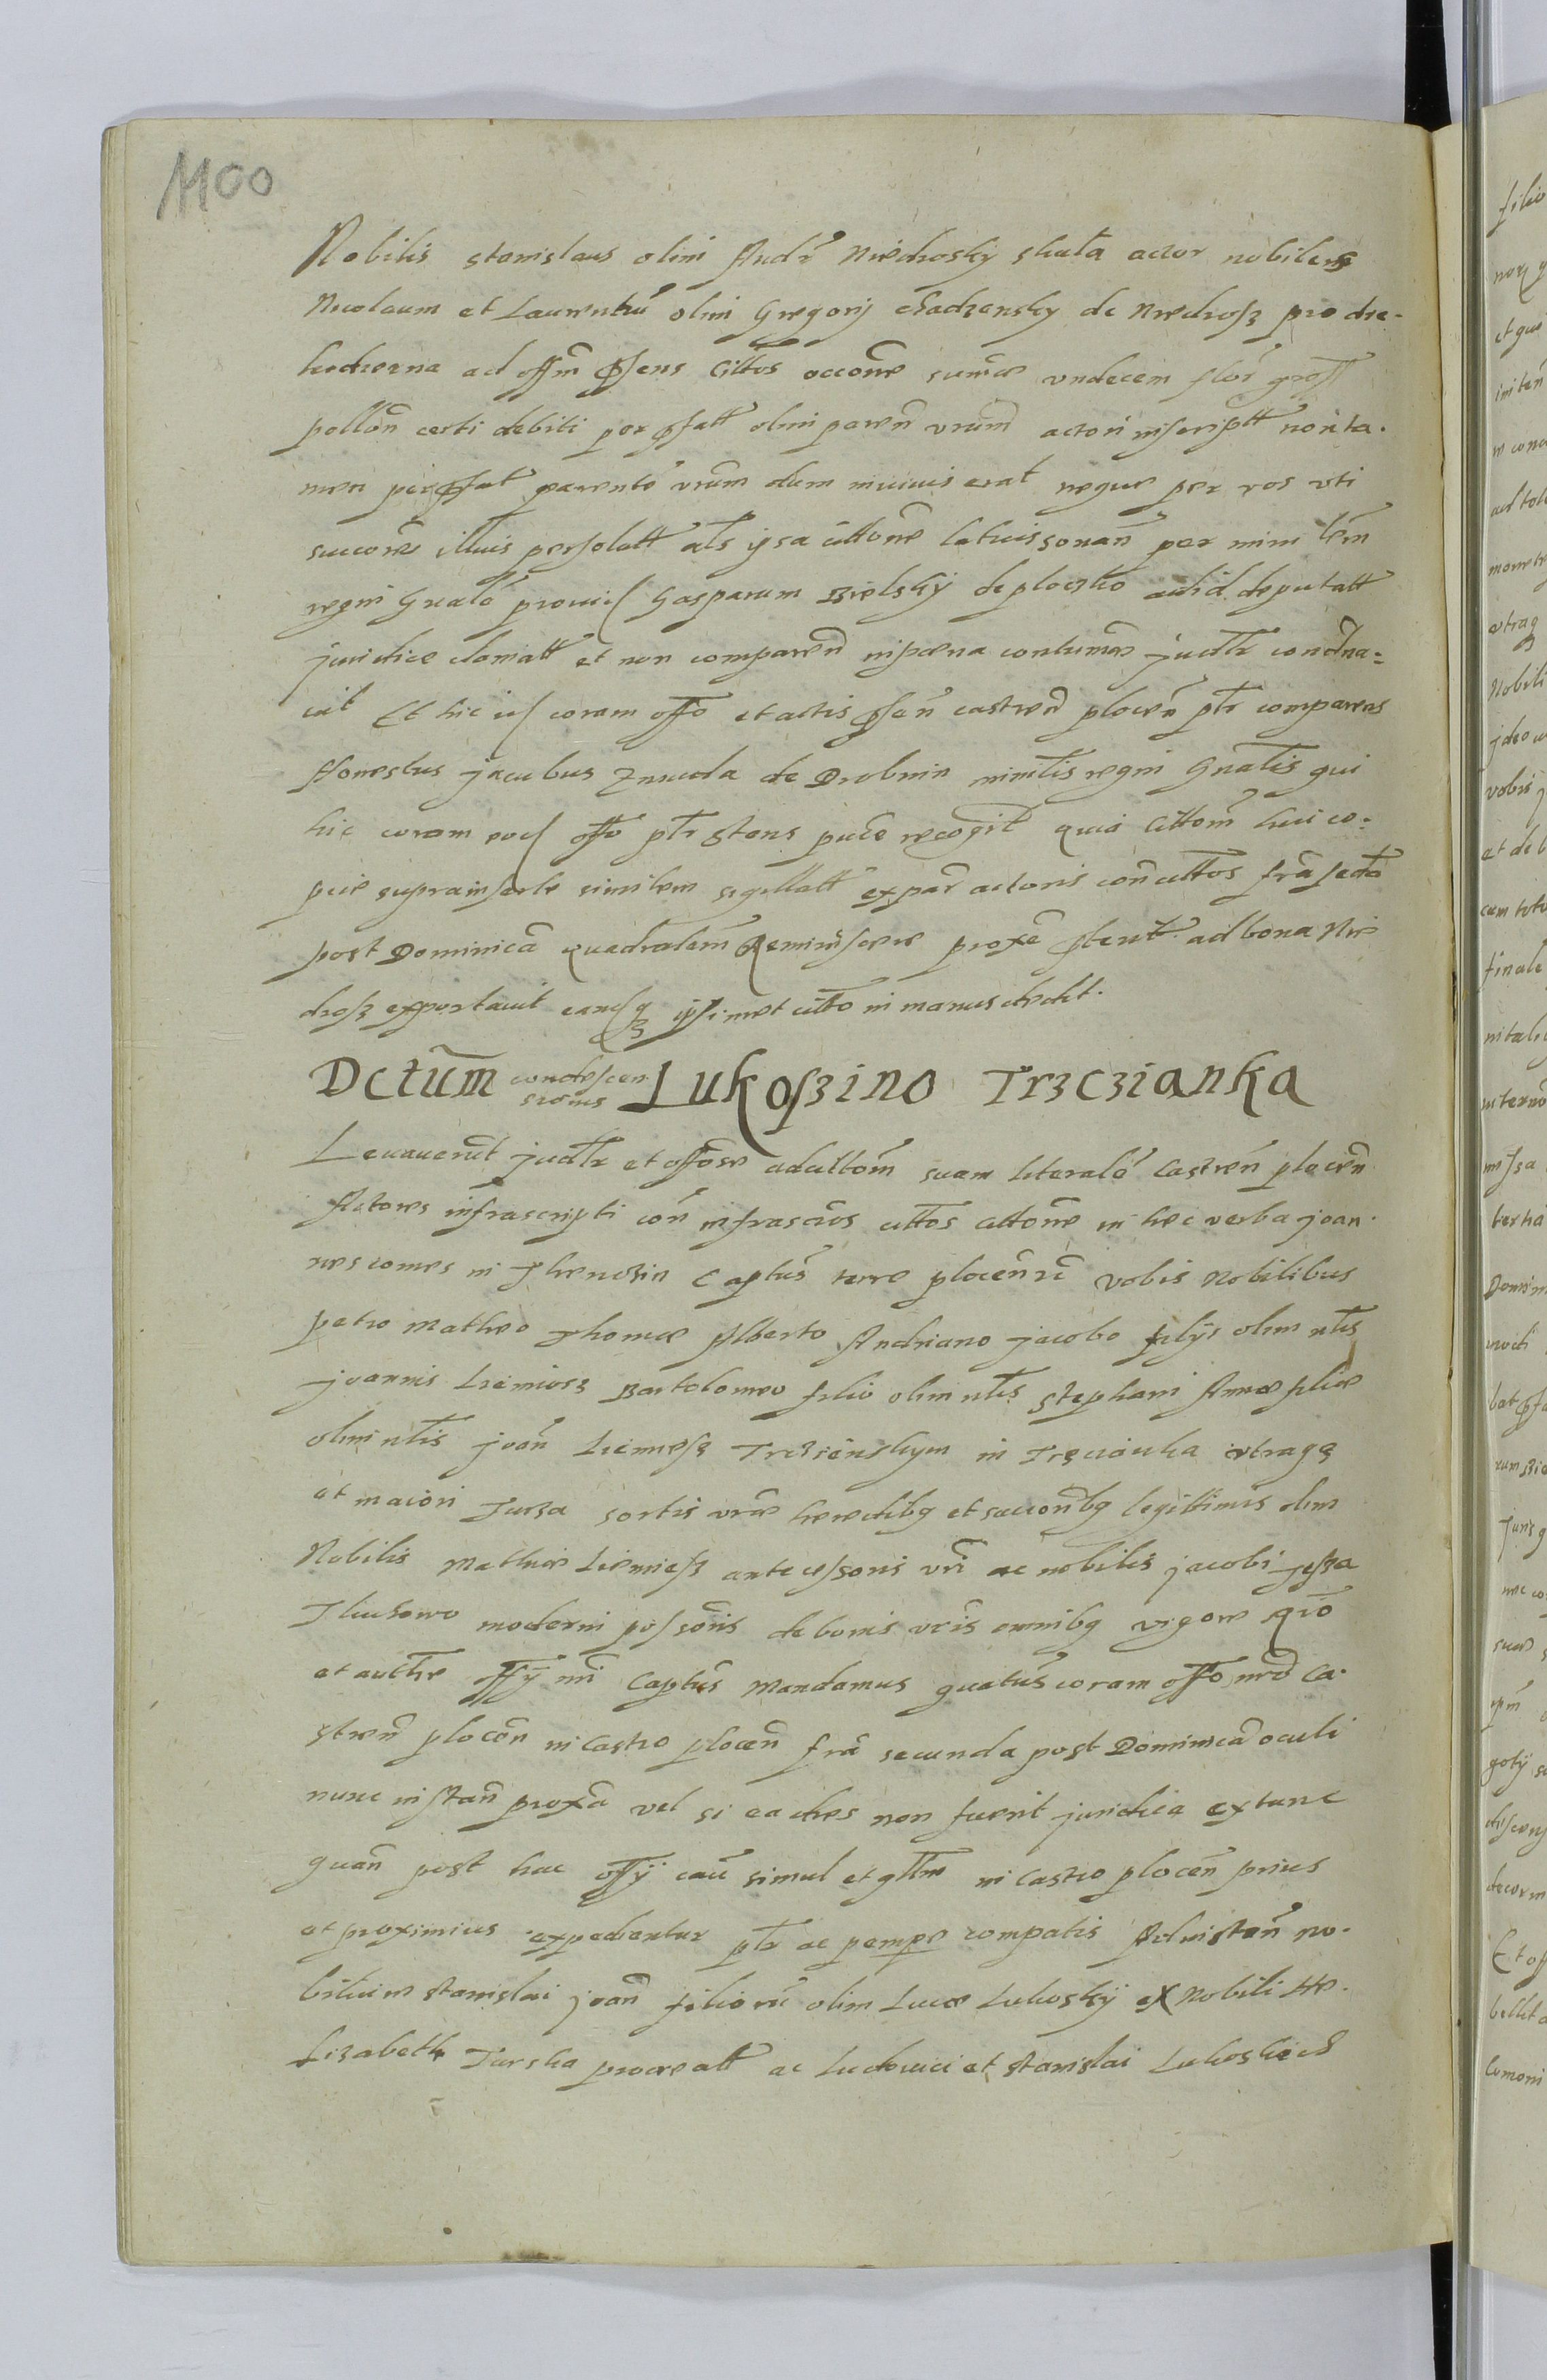 1100
Nobilis Stanislaus olim Andr Niedrosky skuła actor nobilem
Nicolaum et Laurentiu olim Gregorij de Niedrosz pro die
hodierna ad offm pſens Cittos accone sumae vndecem flor groſſ
pollon certi debiti per pſatt olim paren vrum actori inscriptt non ta-
men per pſat parente vrum dum in viuis erat neque per vos vti
succores illius persolutt als ipsa cittone latius sonan per mini lem
regni Gnale prouid Gasparum Bielsky de ploczko ad id deputatt
juridice clamatt et non comparen in poena contumae judlr condna=
uit Et hic id coram offo et actis pſen castren plocen plr comparens
Honestus jacubus Znuda de Drobnin minilis regni Gnalis qui
hic coram eod offo plr stans pure recogit quia Cittom huic co-
piae suprainserte similem sigillatt ex par actoris con cittos fra secda
post Dominica quadralem Reminiscere proxe pterit ad bona Nie
drosz exportauit eandq ipsimet citto in manus dedit.
Dctum condescensionis Lukoszino Trzczianka
Levaverut judlr et offose ad cittom suam literale Castren plocen
Actores infrascripti con infrascros cittos Cittone in hec verba joan-
nes comes in Thenczin Captus terre plocensis vobis Nobilibus
petro Matheo Thomae Alberto Andriano jacobo filijs olim nlis
joannis Bartolomeo filio olim nlis Stephani Annae filiae
olim nlis joan in vtraqz
et maiori Turza sortis vrae heredibq et succonbq legittimis olim
Nobilis Mathiae antecessoris vri ac nobilis jacobi
moderni possoris de bonis vris omnibq vigore
et authe offij nri Captus Mandamus quatus coram offo nro Ca-
stren plocen in Castro plocen fra secunda post Dominica oculi
nunc instan proxa vel si ea dies non fuerit juridica ex tunc
quan post hac offij cau simul et qllm in Castro plocen prius
et proximius expedientur plr ac pempe compatis Ad instan no-
bilium Stanislai joan filioru olim Lucae Lukosky ex Nobili He-
lizabeth Turska procreatt ac Ludouici et Stanislai